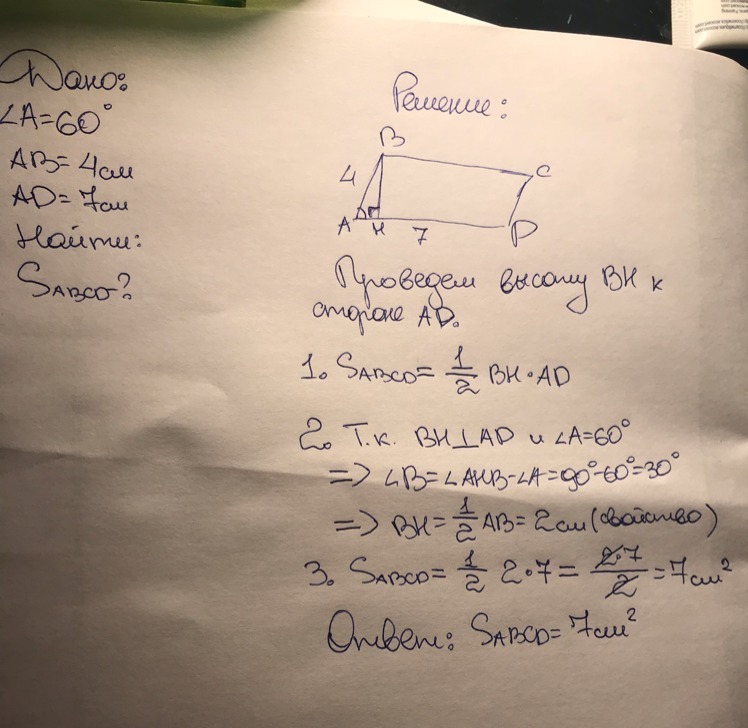 Дано:
∠A=60°
AB=4см
AD=7см
Найти:
SABCD?
Решение:
B
C
4
A
H
7
D
Проведем высоту BH к
стороне AD.
1. SABCD= 1/2 BH·AD
2. Т.к. BH⊥AD и ∠A=60°
=> ∠B=∠AHB-∠A=90°-60°=30°
=> BH= 1/2 AB= 2см (свойство)
3. SABCD= 1/2 2·7= 2·7/2 =7см²
Ответ: SABCD= 7см²